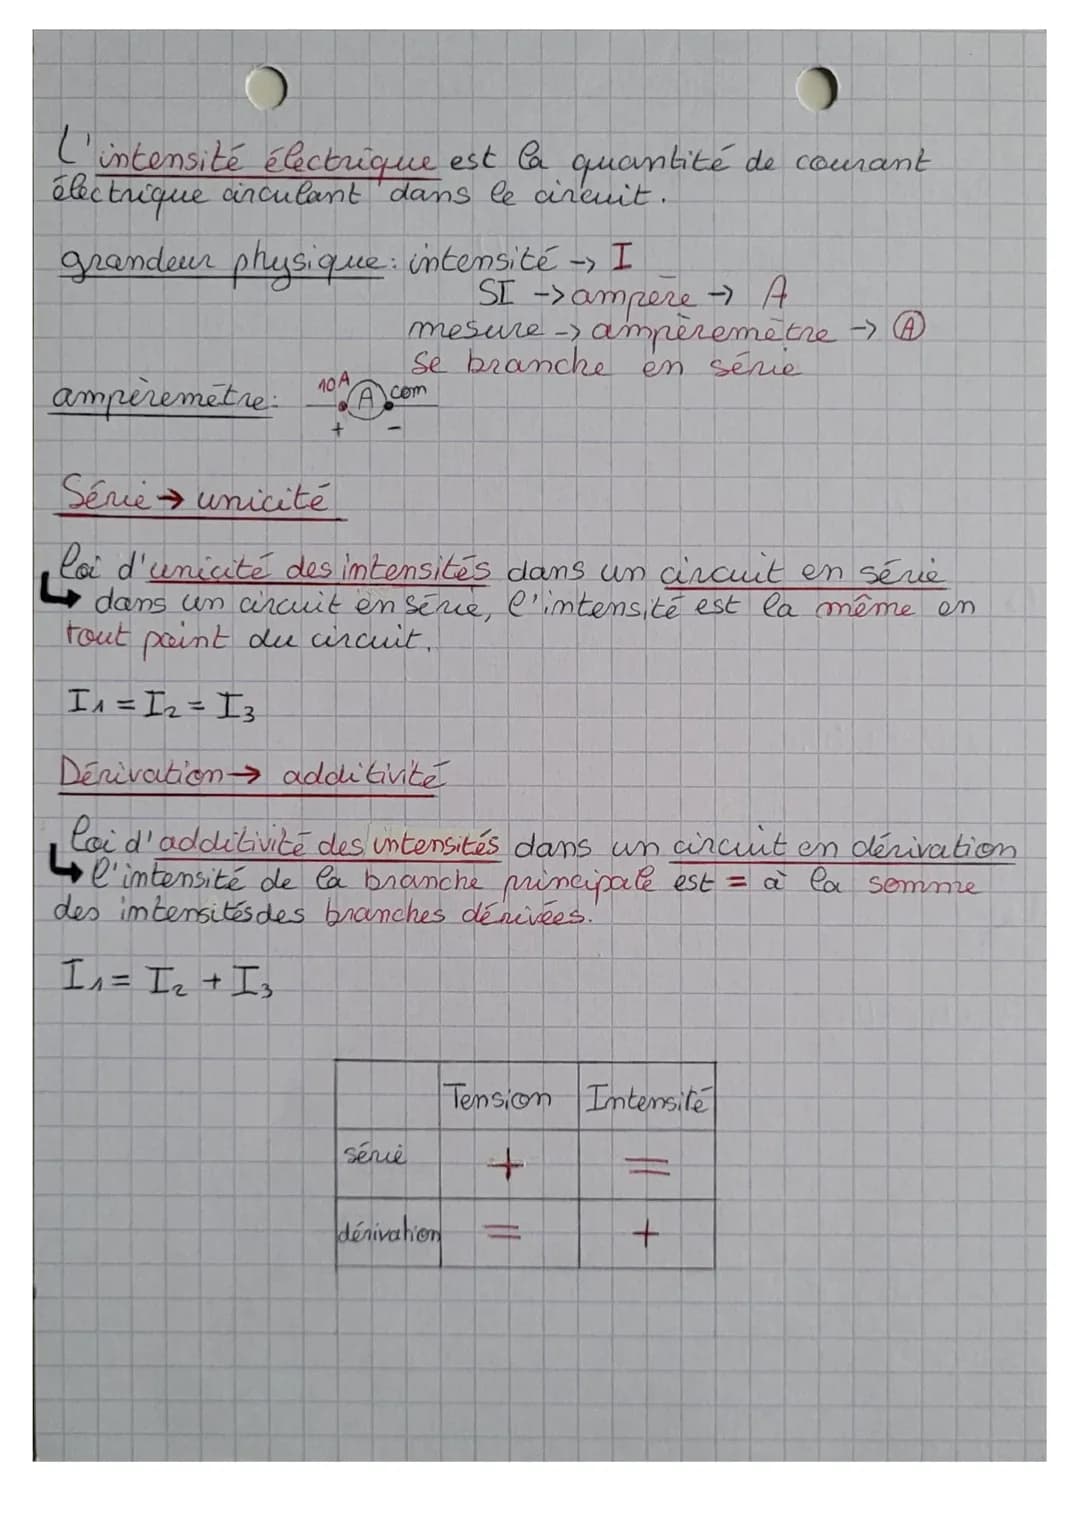 L'intensité électrique est la quantité de courant
électrique circulant dans le circuit.
grandeur physique: intensité -> I
SI -> ampère -> A
mesure -> ampèremètre -> Ⓐ
se branche en série
ampèremètre: 10A A com
+ -
Série → unicité
loi d'unicité des intensités dans un circuit en série
↳ dans un circuit en série, l'intensité est la même en
tout point du circuit.
I₁ = I₂ = I₃
Dérivation → additivité
loi d'additivité des intensités dans un circuit en dérivation
↳ l'intensité de la branche principale est = à la somme
des intensités des branches dérivées.
I₁ = I₂ + I₃
Tension Intensité
série + =
dérivation = +